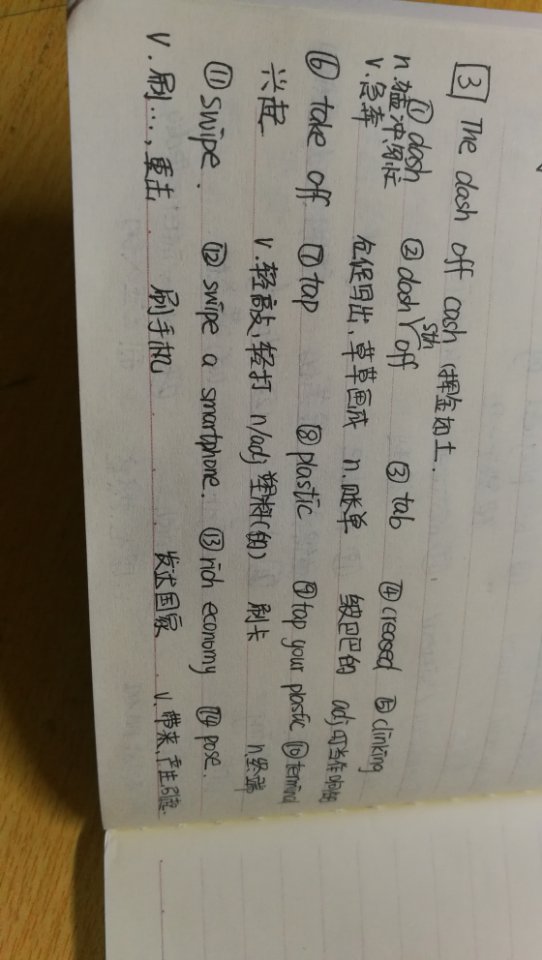 3 The dash off cash 挥金如土.
① dash ② dash sth off ③ tab ④ creased ⑤ clinking
n.猛冲,匆忙 v.急奔 仓促写出,草草画成 n.账单 皱巴巴的 adj.叮当作响的
⑥ take off ⑦ tap ⑧ plastic ⑨ tap your plastic ⑩ terminal
兴起 v.轻敲,轻打 n/adj 塑料(的) 刷卡 n.终端
⑪ swipe. ⑫ swipe a smartphone. ⑬ rich economy ⑭ pose.
v.刷…,重击 刷手机 发达国家 v.带来,产生,引起.